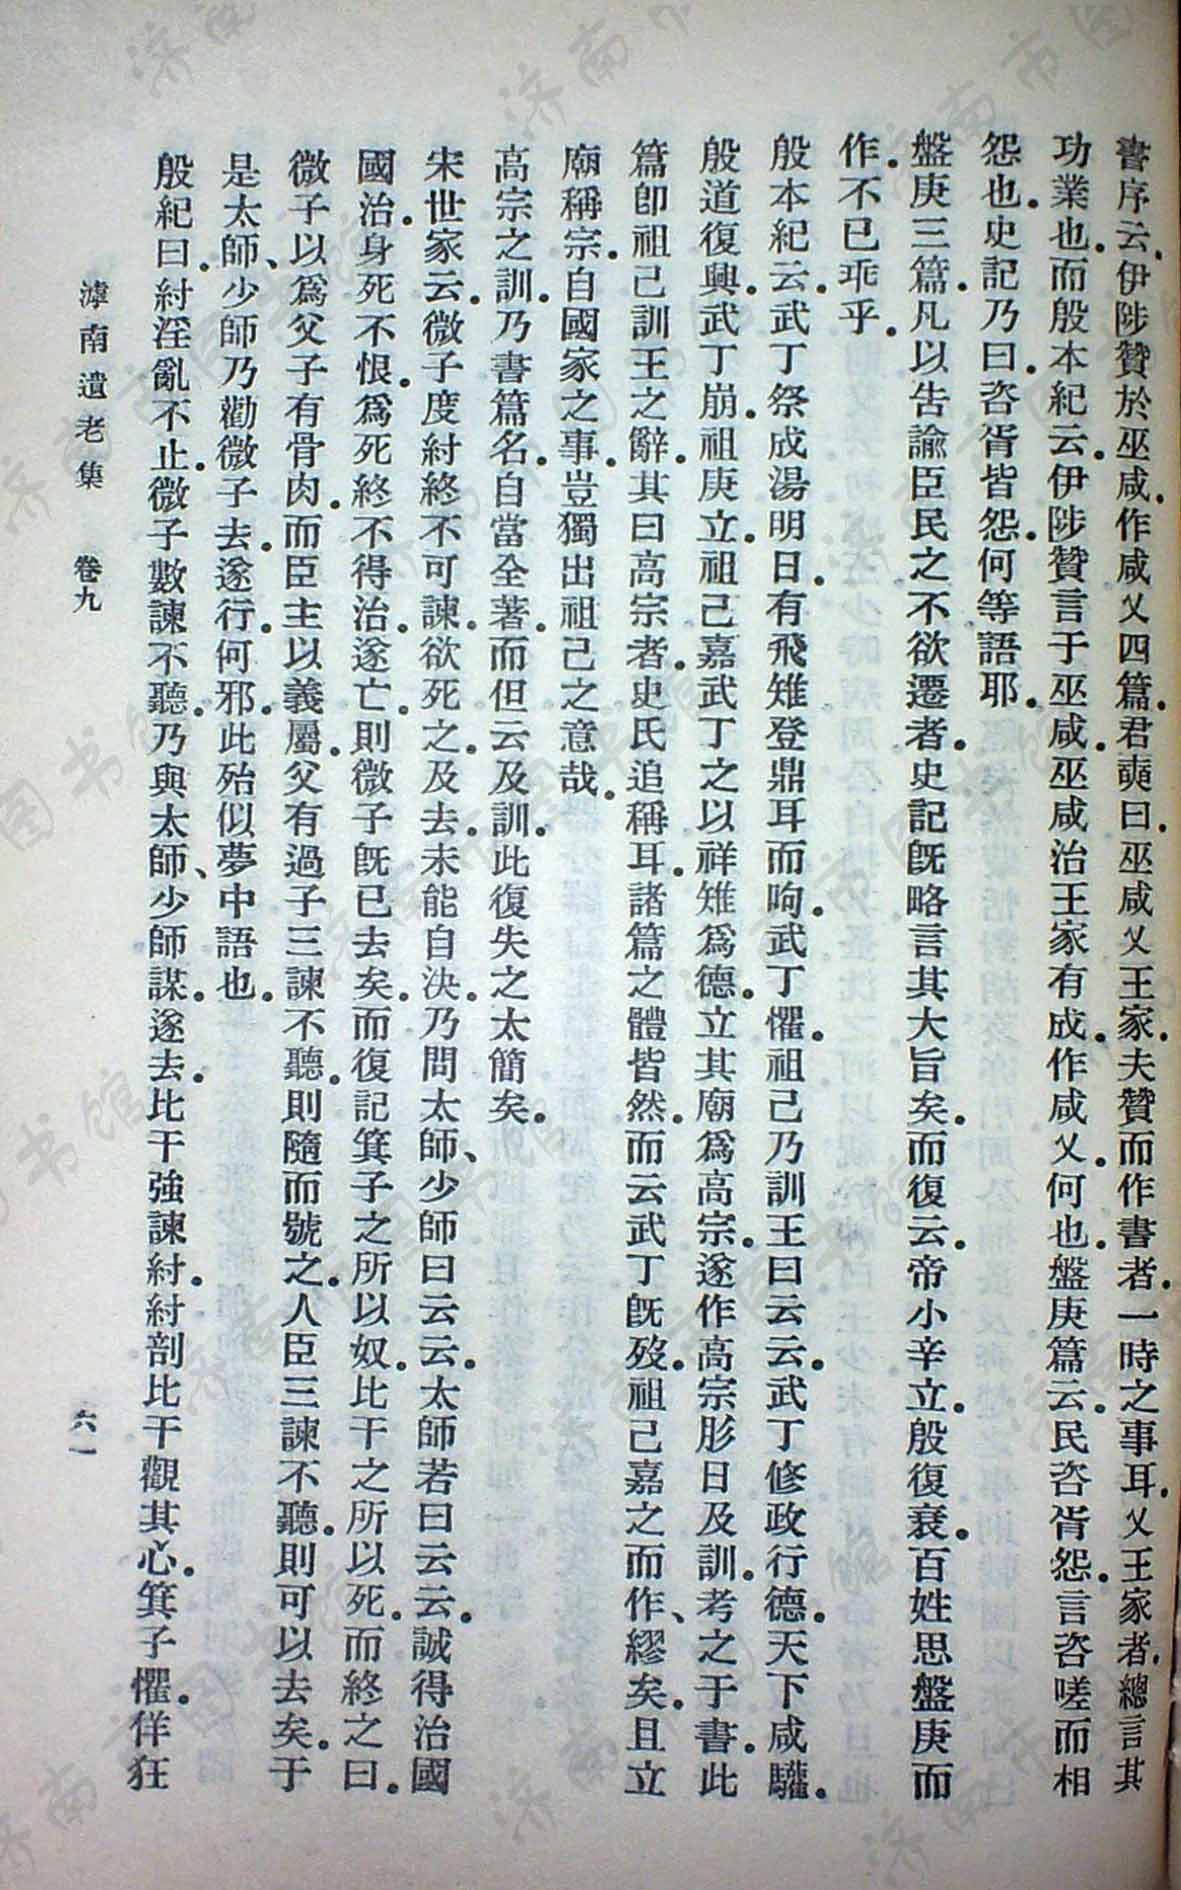 書序云伊陟贊於巫咸作咸乂四篇君奭曰巫咸乂王家夫贊而作書者一時之事耳乂王家者總言其
功業也而殷本紀云伊陟贊言于巫咸巫咸治王家有成作咸乂何也盤庚篇云民咨胥怨言咨嗟而相
怨也史記乃曰咨胥皆怨何等語耶
盤庚三篇凡以告諭臣民之不欲遷者史記旣略言其大旨矣而復云帝小辛立殷復衰百姓思盤庚而
作不已乖乎
殷本紀云武丁祭成湯明日有飛雉登鼎耳而呴武丁懼祖己乃訓王曰云云武丁修政行德天下咸驩
殷道復興武丁崩祖庚立祖己嘉武丁之以祥雉爲德立其廟爲高宗遂作高宗肜日及訓考之于書此
篇卽祖己訓王之辭其曰高宗者史氏追稱耳諸篇之體皆然而云武丁旣歿祖己嘉之而作、繆矣且立
廟稱宗自國家之事豈獨出祖己之意哉
高宗之訓乃書篇名自當全著而但云及訓此復失之太簡矣
宋世家云微子度紂終不可諫欲死之及去未能自決乃問太師、少師曰云云太師若曰云云誠得治國
國治身死不恨爲死終不得治遂亡則微子旣已去矣而復記箕子之所以奴比干之所以死而終之曰
微子以爲父子有骨肉而臣主以義屬父有過子三諫不聽則隨而號之人臣三諫不聽則可以去矣于
是太師、少師乃勸微子去遂行何邪此殆似夢中語也
殷紀曰紂淫亂不止微子數諫不聽乃與太師、少師謀遂去比干強諫紂紂剖比干觀其心箕子懼佯狂
滹南遺老集 卷九
六一